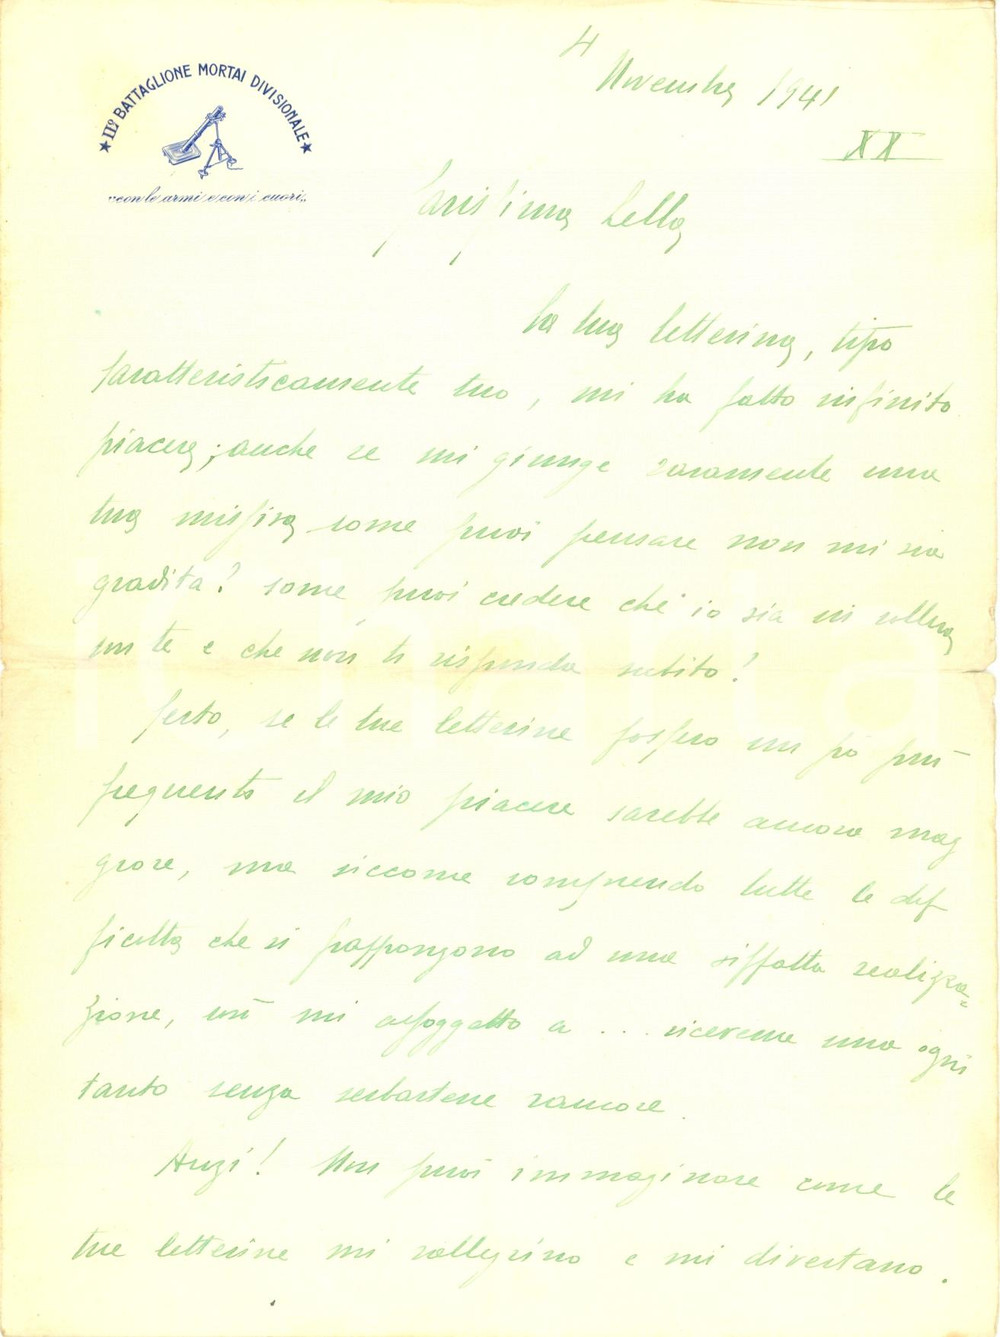 ★ IIº BATTAGLIONE MORTAI DIVISIONALE ★
"con le armi e con i cuori"
4 Novembre 1941
XX
Carissima Lella
La tua letterina, tipo
caratteristicamente tuo, mi ha fatto infinito
piacere; anche se mi giunge raramente una
tua missiva come puoi pensare non mi sia
gradita? Come puoi credere che io sia in collera
con te e che non ti risponda subito?
Certo, se le tue letterine fossero un po più
frequenti il mio piacere sarebbe ancora mag
giore, ma siccome comprendo tutte le dif
ficoltà che si frappongono ad una siffatta realizza=
zione, così mi assoggetto a ... riceverne una ogni
tanto senza serbartene rancore.
Anzi! Non puoi immaginare come le
tue letterine mi rallegrino e mi divertano.
icharta